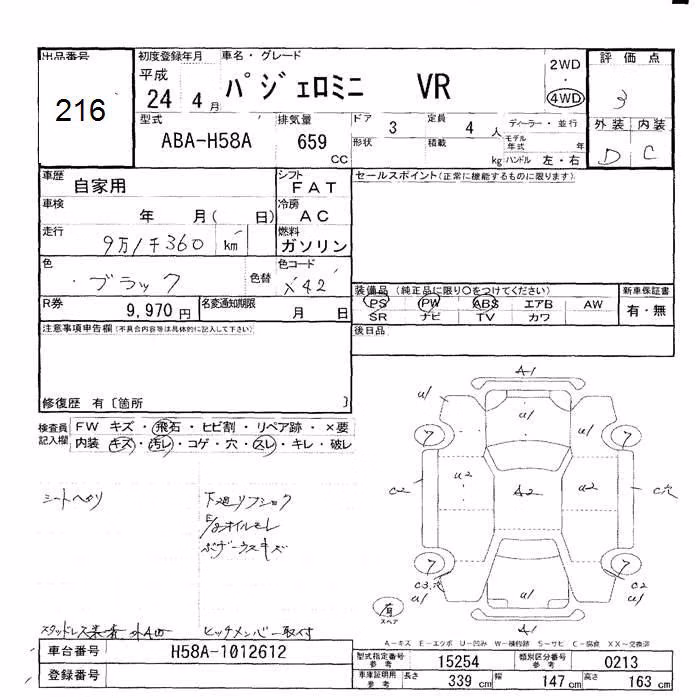 出品番号
216
初度登録年月
平成
24 4 月
車名・グレード
パジェロミニ VR
2WD
・
4WD
評価点
3
外装 内装
D C
型式
ABA-H58A
排気量
659
cc
ドア 3
形状
定員 4 人
積載 kg
ディーラー・並行
モデル年式 年
ハンドル 左・右
車歴
自家用
シフト
FAT
セールスポイント(正常に機能するものに限ります)
車検
年 月( 日)
冷房
AC
走行
9万1千360 km
燃料
ガソリン
色
・ブラック
色替
色コード
X42
装備品(純正品に限り〇をつけてください)
PS PW ABS エアB AW
SR ナビ TV カワ
新車保証書
有・無
R券
9,970 円
名変通知期限
月 日
後日品
注意事項申告欄(不具合内容等は具体的に記入して下さい)
修復歴 有〔箇所 〕
検査員記入欄
FW キズ・飛石・ヒビ割・リペア跡・×要
内装 キズ・汚レ・コゲ・穴・スレ・キレ・破レ
シートヘタリ
下廻りフショク
E/gオイルモレ
スタッドレス装着
ヒッチメンバー取付
A1
u1
u1
7
7
C2
u2
A2
u2
C穴
7
7
C3.穴
u1
u1
C2
u1
A1
有
スペア
A-キズ E-エクボ U-凹み W-補修跡 S-サビ C-腐食 XX-交換済
車台番号
H58A-1012612
登録番号
型式指定番号
参考
15254
類別区分番号
参考
0213
車庫証明用
参考
長さ 339 cm
幅 147 cm
高さ 163 cm